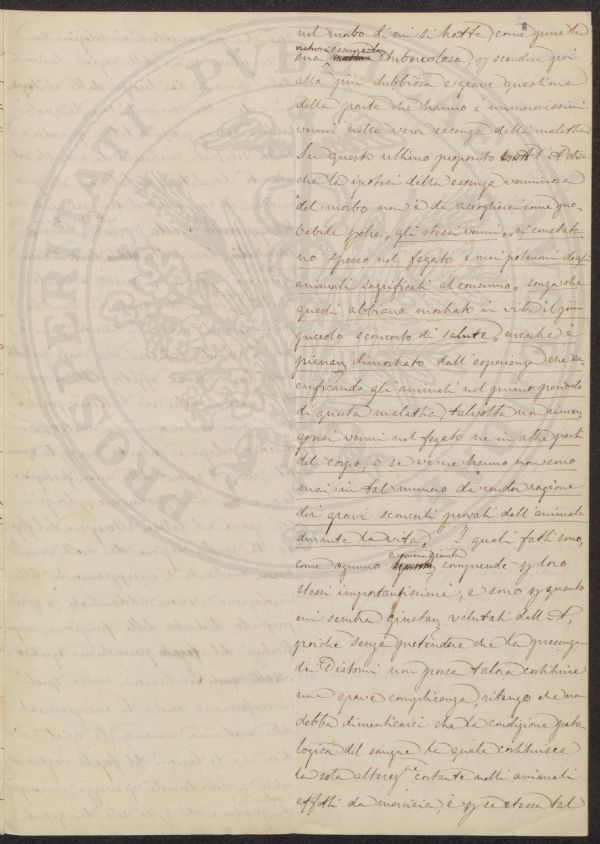 nel morbo di cui si tratta, come pure la
natura essenzialm
sua tubercolosa, p scendere poi
alla più dubbiosa e grave questione
della parte che hanno i numerosissimi
vermi nella vera essenza della malattia.
Su questo ultimo proposito l'A dice
che la ipotesi della essenza verminosa
del morbo non è da accogliersi come pro-
babile pche „gli stessi vermi „si constata-
no spesso nel fegato e nei polmoni degli
animali sagrificati al consumo„ senza che
questi abbiano mostrato in vita il più
piccolo sconcerto di salute, mentre è
pienam dimostrato dall'esperienza che sa-
crificando gli animali nel primo periodo
di questa malattia, talvolta non rinven-
gonsi vermi nel fegato ne in altre parti
del corpo, o se ve ne hanno non sono
mai in tal numero da render ragione
dei gravi sconcerti provati dall'animale
durante la vita. I quali fatti sono,
come ognuno comprende p loro
stessi importantissimi, e sono p quanto
mi sembra giustam valutati dall'A,
poiche senza pretendere che la presenza
de Distomi non possa talora costituire
una grave complicanza, ritengo che non
debba dimenticarsi che la condizione pato-
logica del sangue la quale costituisce
la sola alteraz costante nelli animali
affetti da marciaia, è p se stessa tal